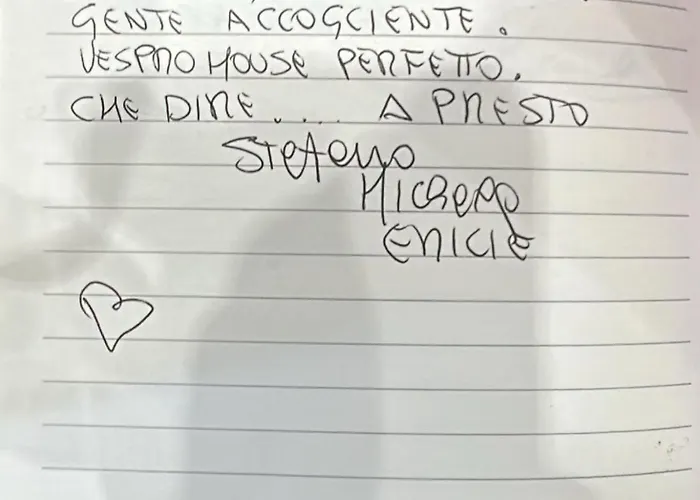 GENTE ACCOGLIENTE.
VESPRO HOUSE PERFETTO.
CHE DIRE.... A PRESTO
Stefano